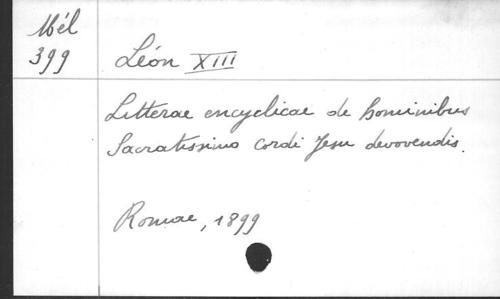 Mél
399
Léon XIII
Litterae encyclicae de hominibus
Sacratissimo cordi Jesu devovendis.
Romae, 1899